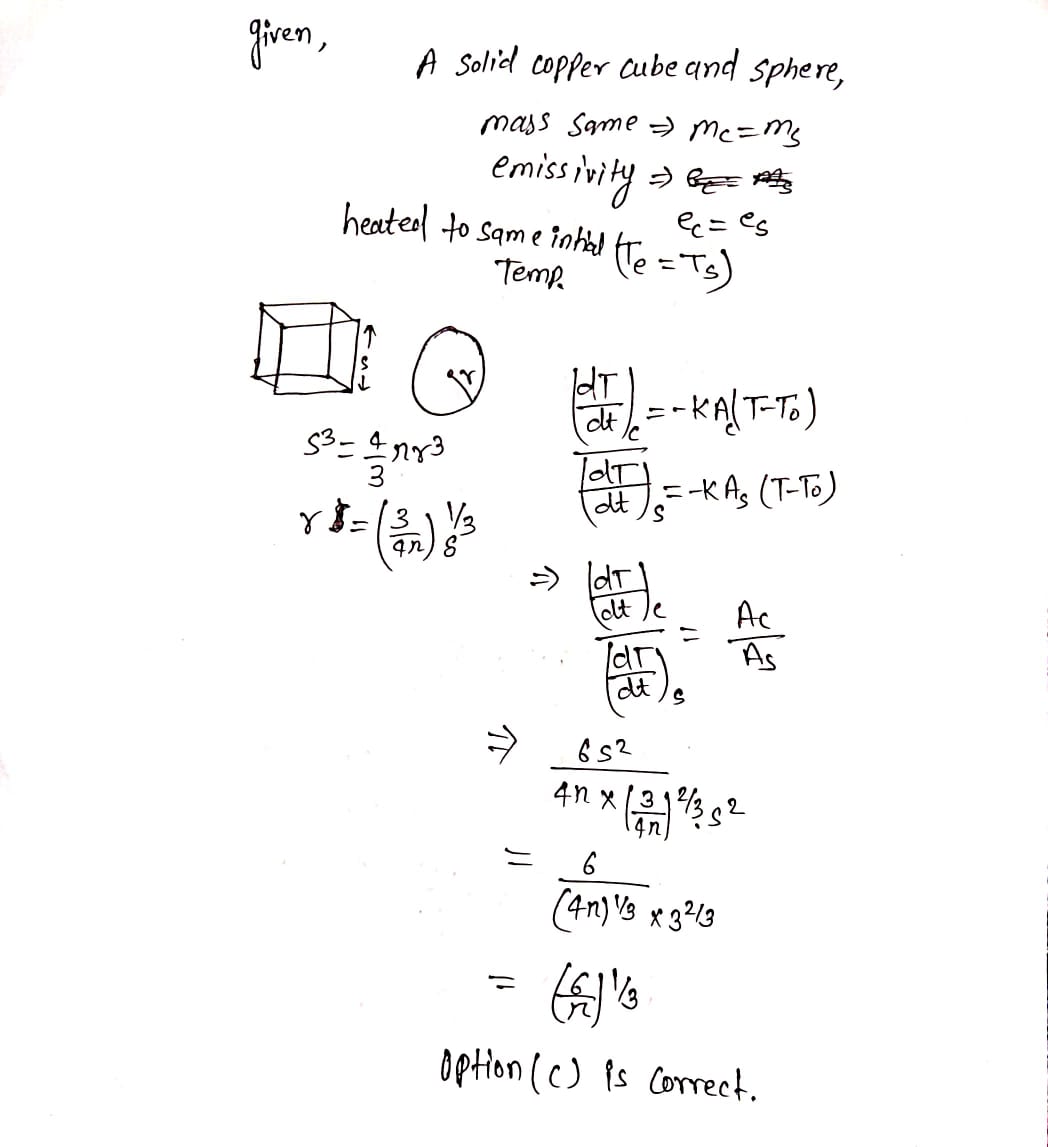 given,
A solid copper cube and sphere,
mass same ⇒ mc = ms
emissivity ⇒
ec = es
heated to same intial (Te = Ts)
Temp.
s
r
s³ = 4/3 πr³
r = (3/4π)^1/3 s
(dT/dt)c = -KAc(T-To)
(dT/dt)s = -KAs (T-To)
⇒ (dT/dt)c / (dT/dt)s = Ac/As
⇒ 6s² / 4π × (3/4π)^2/3 s²
= 6 / (4π)^1/3 × 3^2/3
= (6/π)^1/3
Option (c) is correct.